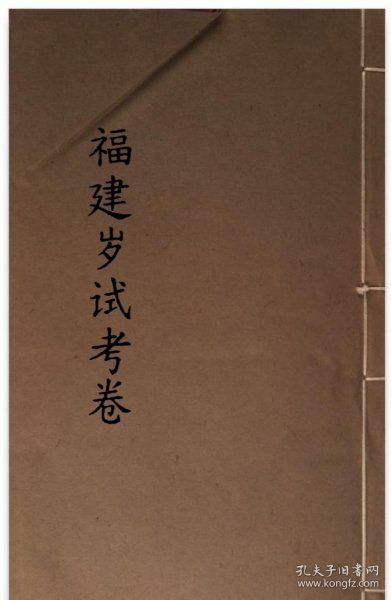 福建岁试考卷
孔夫子旧书网
www.kongfz.com